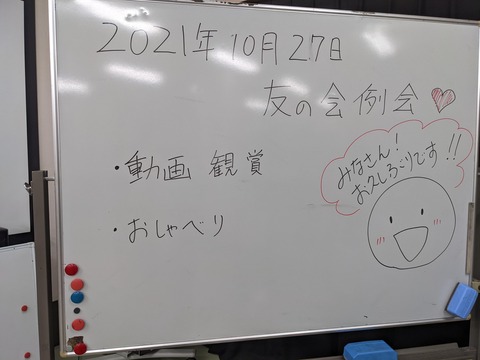 2021年10月27日
友の会例会
・動画 観賞
・おしゃべり
みなさん！
お久しぶりです!!